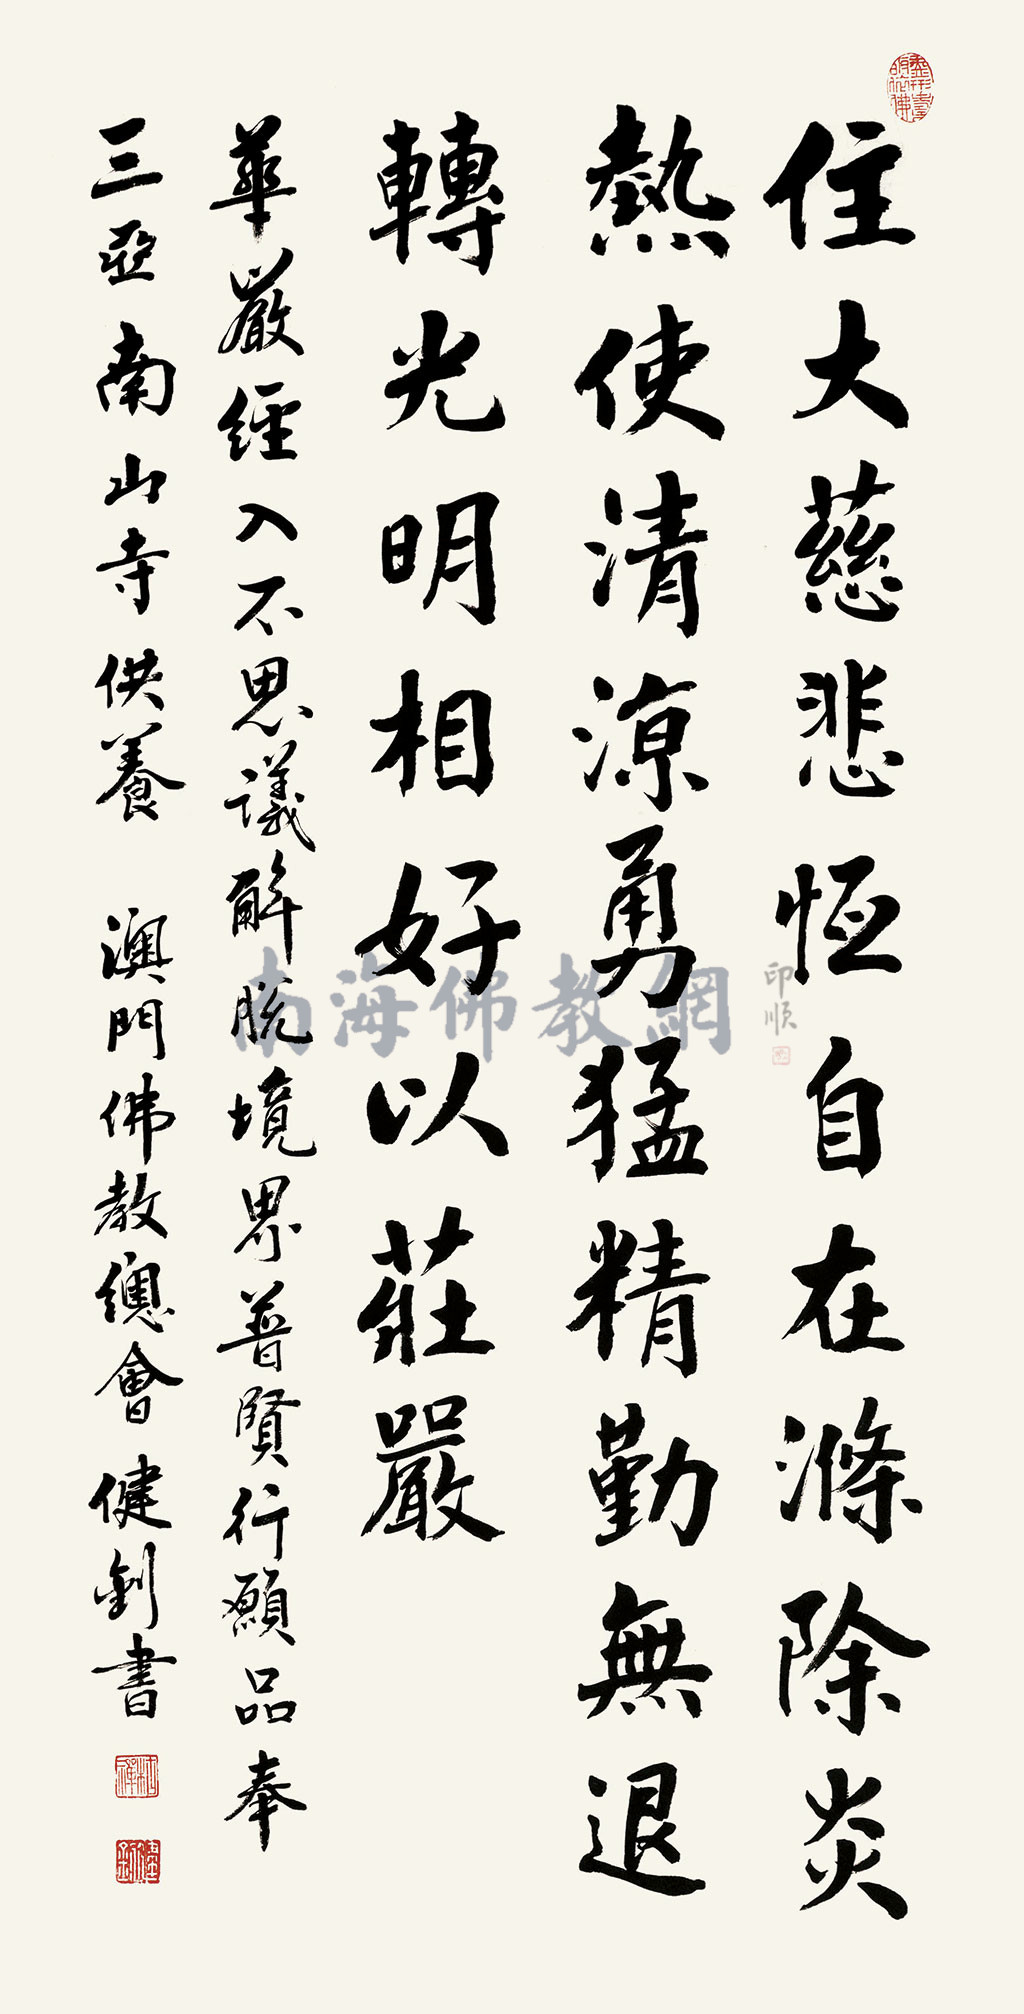 住大慈悲恆自在滌除炎
熱使清涼勇猛精勤無退
轉光明相好以莊嚴
華嚴經入不思議解脫境界普賢行願品奉
三亞南山寺供養 澳門佛教總會健釗書
南海佛教網
印順